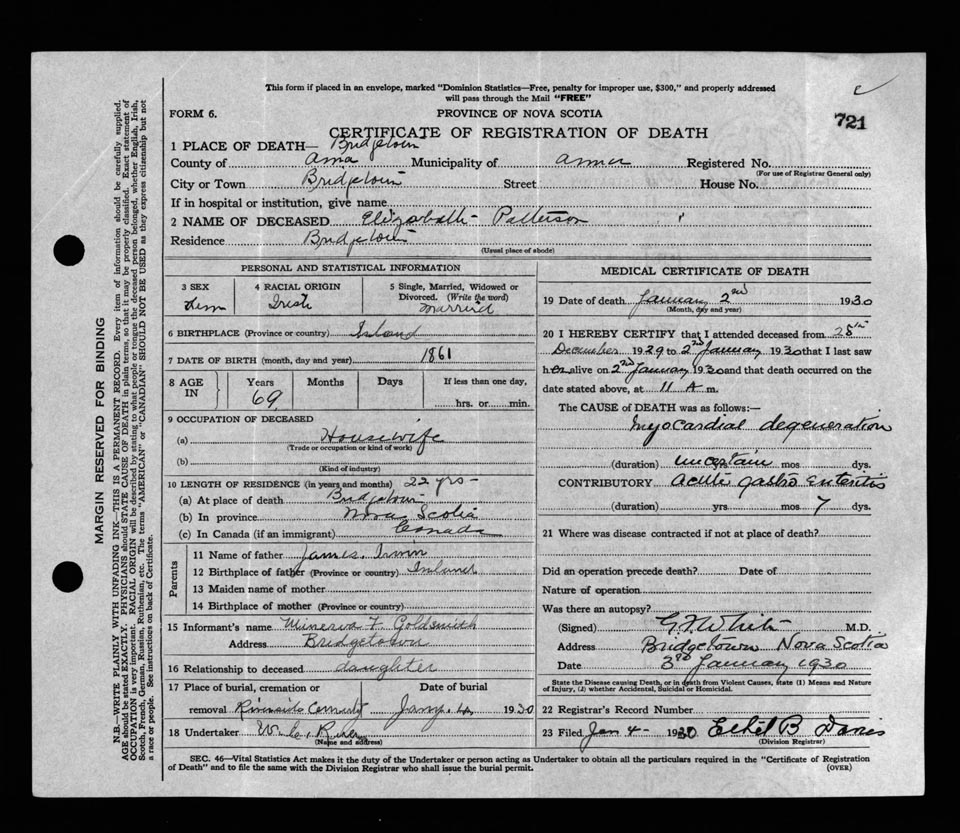 This form if placed in an envelope, marked "Dominion Statistics—Free, penalty for improper use, $300," and properly addressed
will pass through the Mail "FREE"
FORM 6. PROVINCE OF NOVA SCOTIA 721
CERTIFICATE OF REGISTRATION OF DEATH
1 PLACE OF DEATH— Bridgetown
County of Anna Municipality of Anna Registered No.
(For use of Registrar General only)
City or Town Bridgetown Street House No.
If in hospital or institution, give name
2 NAME OF DECEASED Elizabeth Patterson
Residence Bridgetown
(Usual place of abode)
PERSONAL AND STATISTICAL INFORMATION
3 SEX 4 RACIAL ORIGIN 5 Single, Married, Widowed or
Divorced. (Write the word)
Fem Irish Married
6 BIRTHPLACE (Province or country) Ireland
7 DATE OF BIRTH (month, day and year) 1861
8 AGE IN Years Months Days If less than one day,
69 hrs. or min.
9 OCCUPATION OF DECEASED
(a) Housewife
(Trade or occupation or kind of work)
(b)
(Kind of industry)
10 LENGTH OF RESIDENCE (in years and months) 22 yrs—
(a) At place of death Bridgetown
(b) In province Nova Scotia
(c) In Canada (if an immigrant) Canada
Parents
11 Name of father James Irwin
12 Birthplace of father (Province or country) Ireland
13 Maiden name of mother
14 Birthplace of mother (Province or country)
15 Informant's name Minerva F Goldsmith
Address Bridgetown
16 Relationship to deceased daughter
17 Place of burial, cremation or Date of burial
removal Riverside Cemetery Jany. 4 1930
18 Undertaker
(Name and address)
MEDICAL CERTIFICATE OF DEATH
19 Date of death January 2nd 1930
(Month, day and year)
20 I HEREBY CERTIFY that I attended deceased from 28th
December 1929 to 2nd January 1930 that I last saw
her alive on 2nd January 1930 and that death occurred on the
date stated above, at 11 A m.
The CAUSE of DEATH was as follows:—
Myocardial degeneration
(duration) uncertain yrs mos dys.
CONTRIBUTORY Acute gastro Enteritis
(duration) yrs mos 7 dys.
21 Where was disease contracted if not at place of death?
Did an operation precede death? Date of
Nature of operation
Was there an autopsy?
(Signed) G. F. White M.D.
Address Bridgetown Nova Scotia
Date 3rd January 1930
State the Disease causing Death, or in death from Violent Causes, state (1) Means and Nature
of Injury, (2) whether Accidental, Suicidal or Homicidal.
22 Registrar's Record Number
23 Filed Jan 4— 1930 Ethel B Davis
(Division Registrar)
SEC. 46—Vital Statistics Act makes it the duty of the Undertaker or person acting as Undertaker to obtain all the particulars required in the "Certificate of Registration
of Death" and to file the same with the Division Registrar who shall issue the burial permit. (OVER)
MARGIN RESERVED FOR BINDING
N.B.—WRITE PLAINLY WITH UNFADING INK—THIS IS A PERMANENT RECORD. Every item of information should be carefully supplied.
AGE should be stated EXACTLY. PHYSICIANS should STATE CAUSE OF DEATH in plain terms, so that it may be properly classified. Exact statement of
OCCUPATION is very important. RACIAL ORIGIN will be described by stating to what people or tongue the deceased person belonged, whether English, Irish,
Scotch, French, German, Russian, Ruthenian, etc. The terms "AMERICAN" or "CANADIAN" SHOULD NOT BE USED as they express citizenship but not
a race or people. See instructions on back of Certificate.